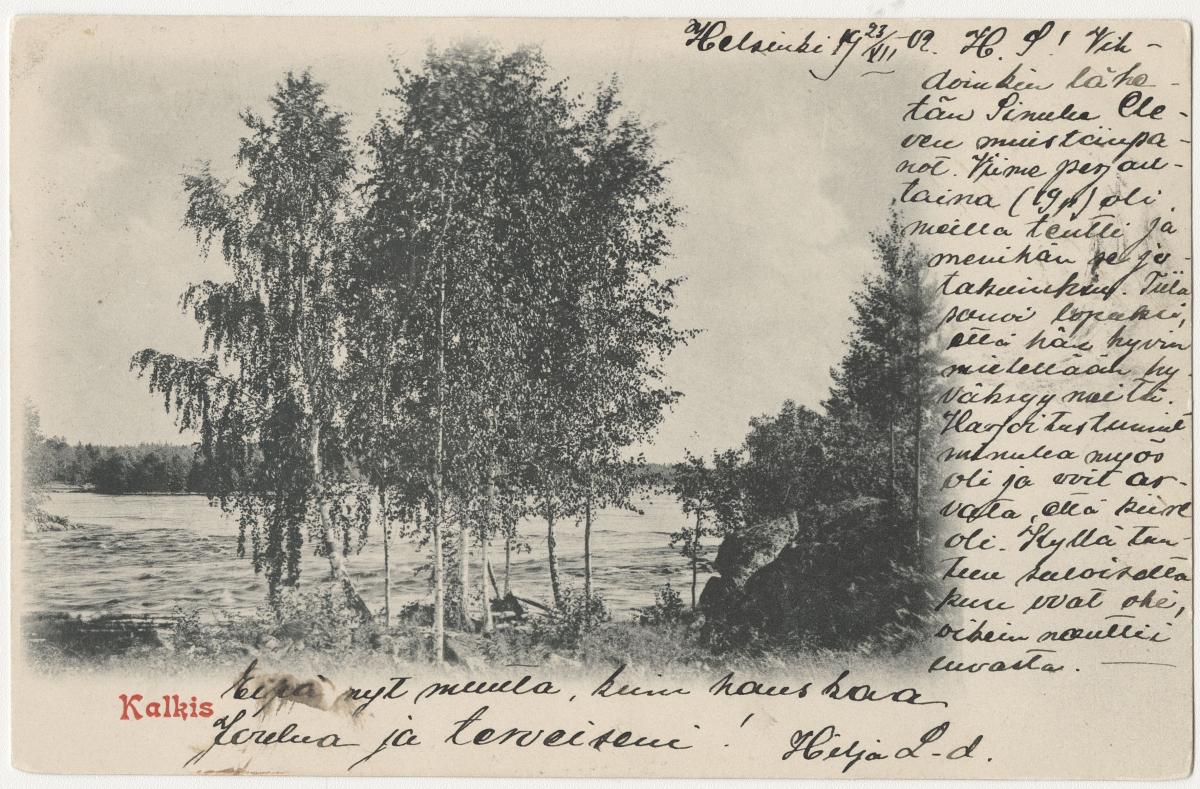 Helsinki 19 23/XII 02. H. S! Vih-
doinkin lähe-
tän Sinulle Ole-
ven muistiinpa-
not. Viime perjan-
taina (19 p) oli
meillä tentti ja
menihän se jo-
takuinkin.
sanoi lopuksi,
että hän hyvin
mielellään hy-
väksyy meitit.
Harjoitustunnit
minulla myös
oli ja voit ar-
vata, että kiire
oli. Kyllä tun-
tuu suloiselta
kun ovat ohi,
oikein nauttii
luvasta.
Kalkis
Eipä nyt muuta, kuin hauskaa
Joulua ja terveiseni! Hilja L-d.